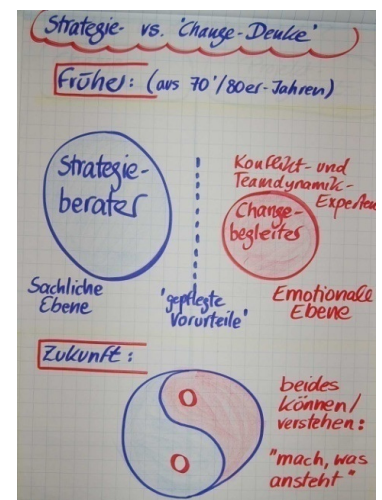 Strategie- vs. 'Change-Denke'
Früher: (aus 70'/80er-Jahren)
Strategie-
berater
Konflikt- und
Teamdynamik-
Experten
Change-
begleiter
Sachliche
Ebene
'gepflegte
Vorurteile'
Emotionale
Ebene
Zukunft:
beides
können/
verstehen:
"mach, was
ansteht"